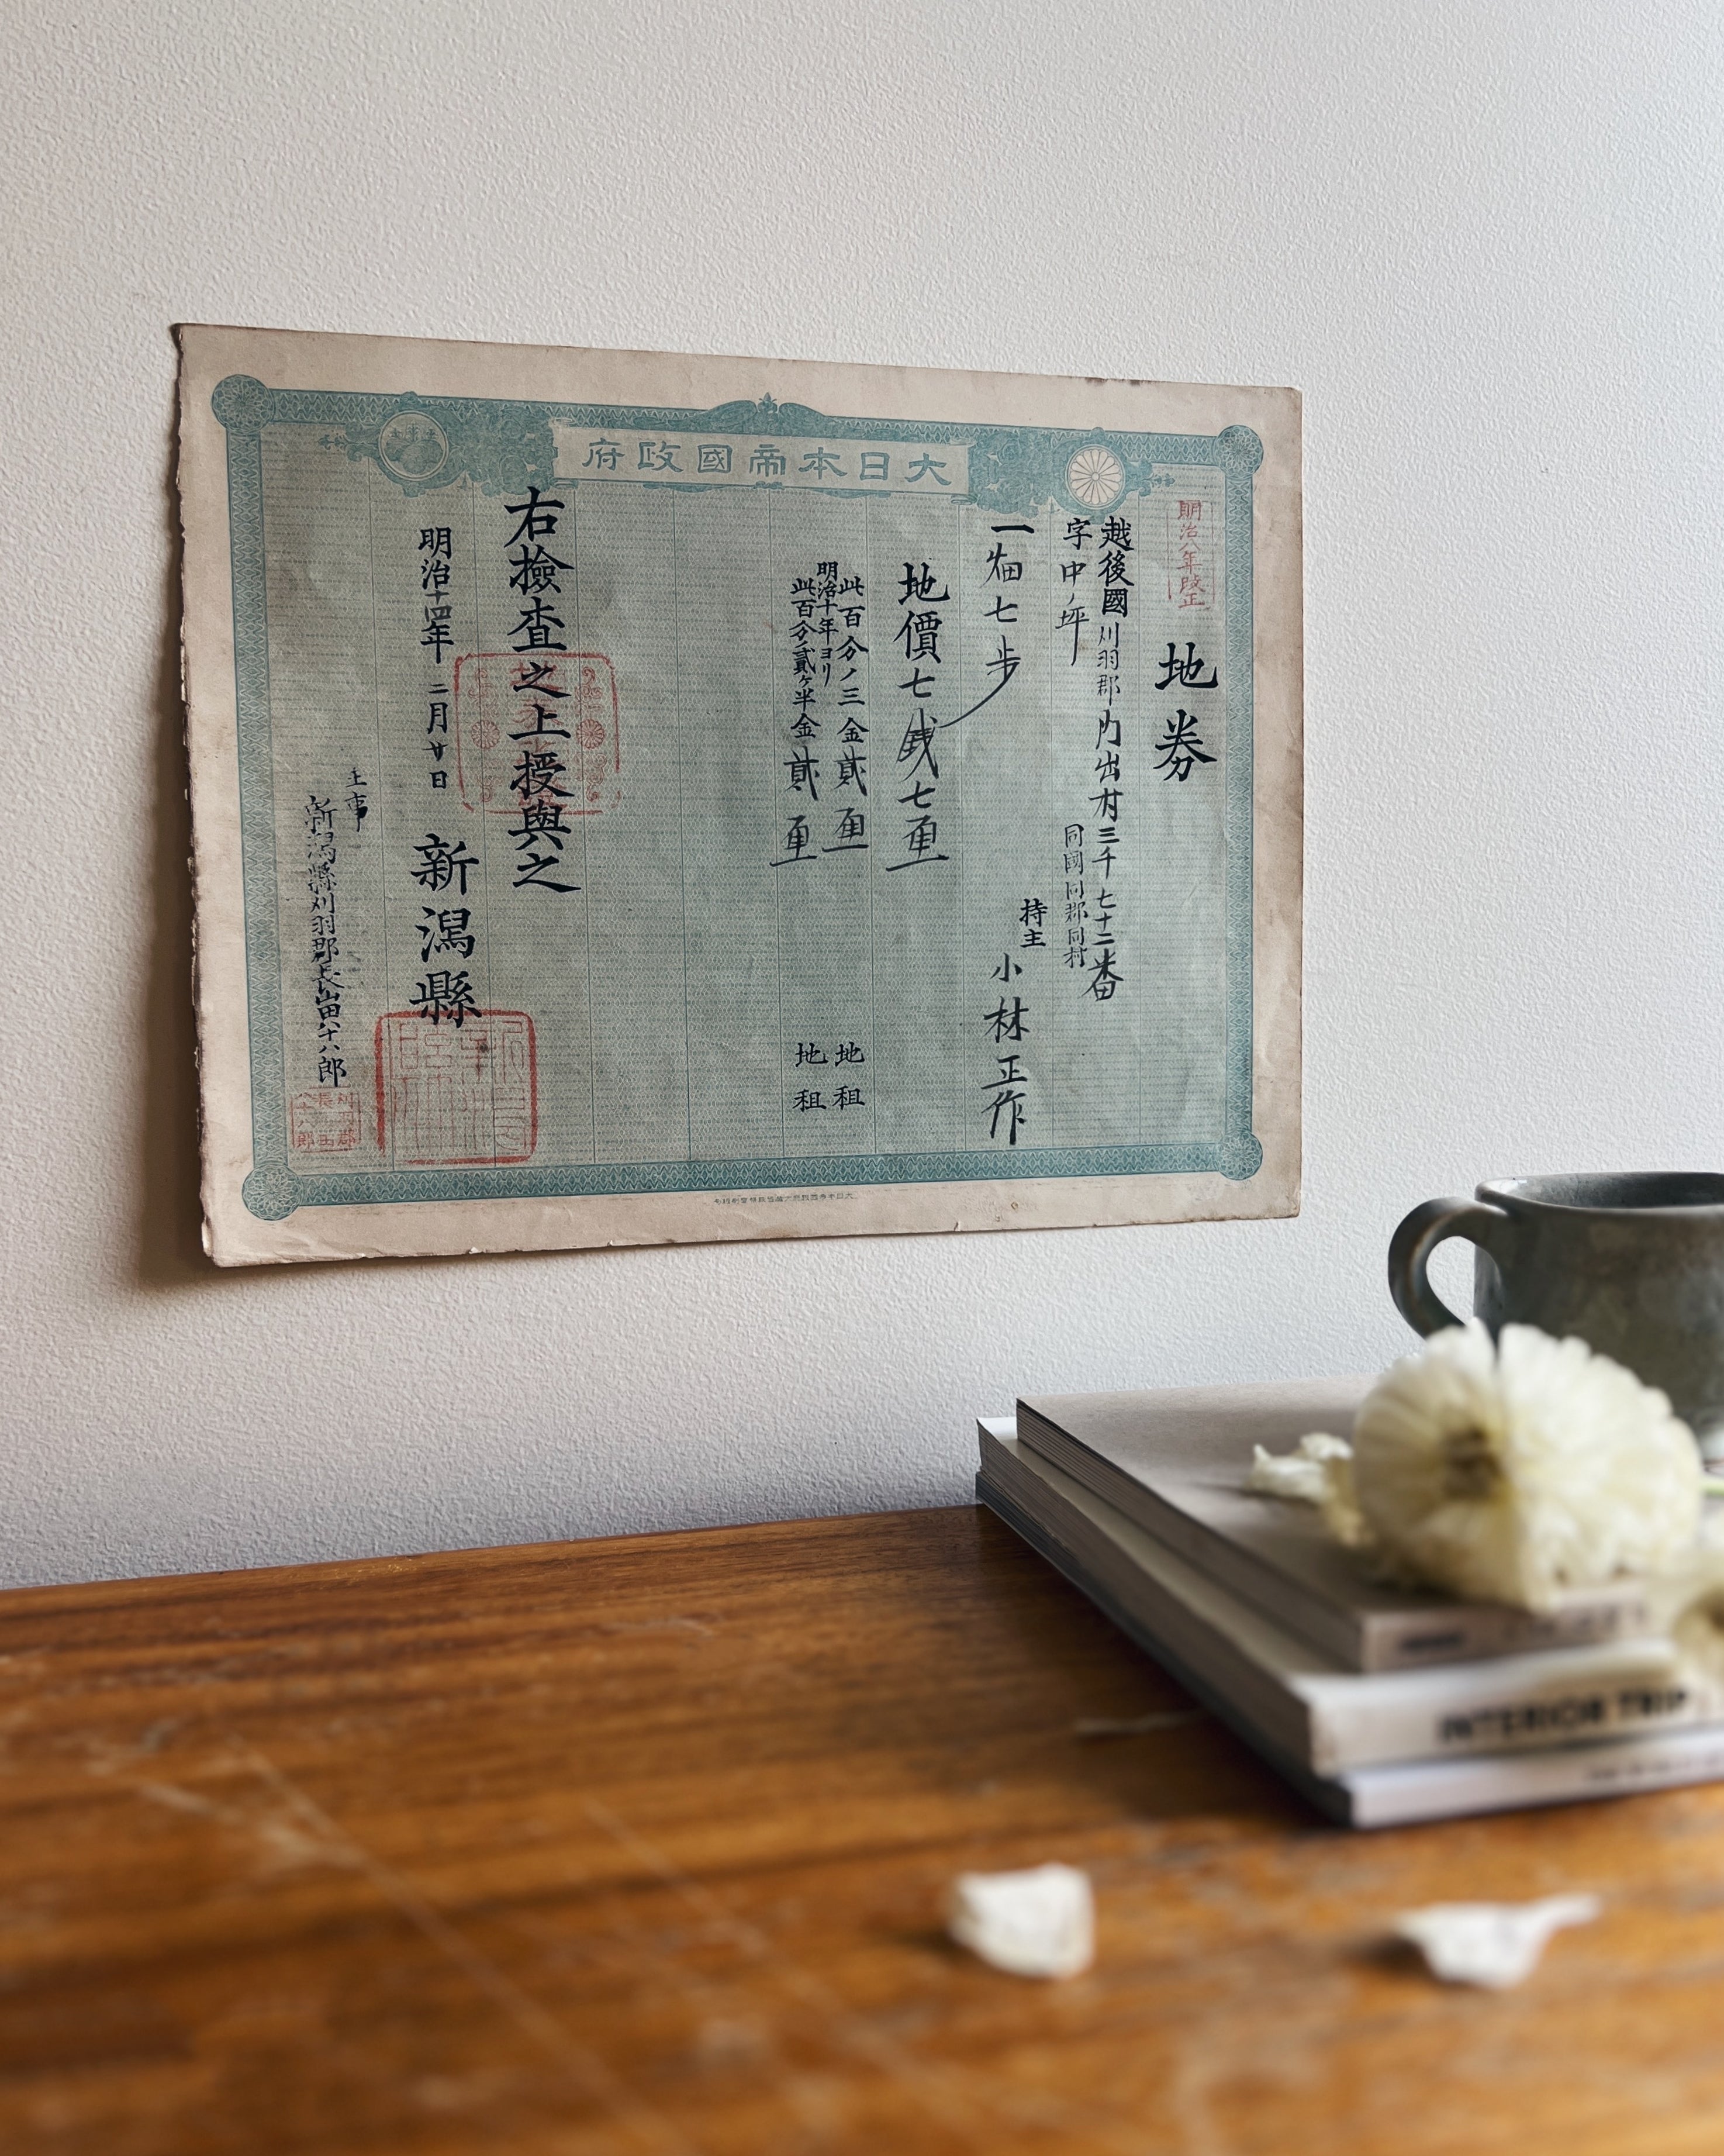 大日本帝國政府
明治八年改正
地券
越後國刈羽郡内出村三千七十二番
字中ノ坪
同國同郡同村
一畑七歩
持主 小林正作
地價七銭七厘
此百分ノ三金貳厘 地租
明治十年ヨリ
此百分ノ貳ヶ半金貳厘 地租
右撿査之上授與之
明治十四年二月廿日 新潟縣
主事
新潟縣刈羽郡長
INTERIOR TRIP